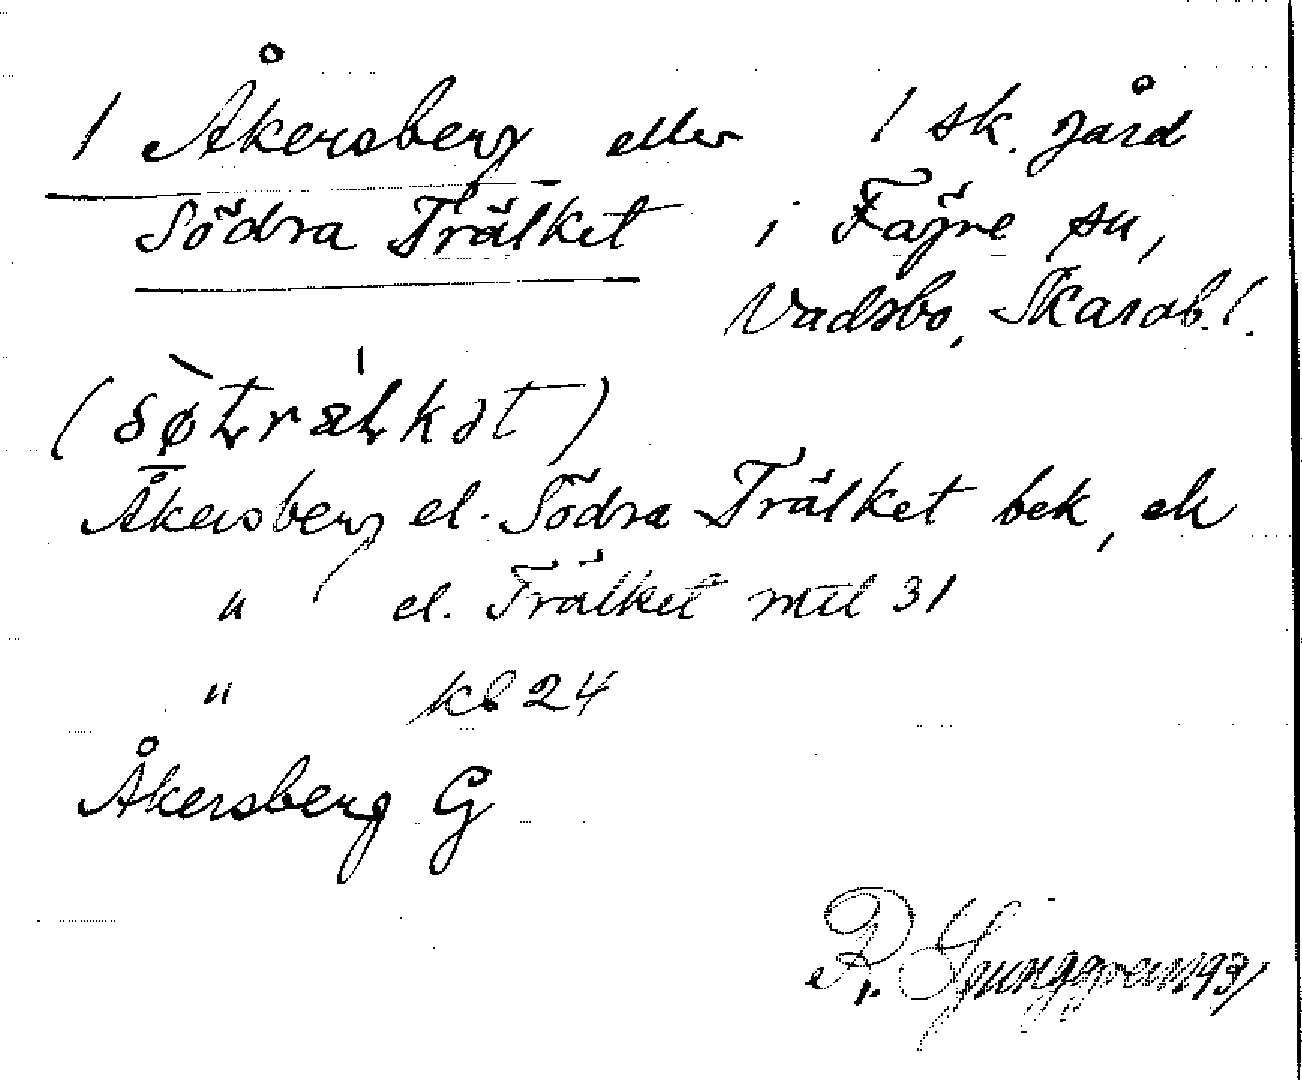 1 Åkersberg eller 1 sk. gård
Södra Trälket i Fägre sn,
Vadsbo, Skarab. l.
(søtrælkət)
Åkersberg el. Södra Trälket bek, ek
" el. Trälket mtl 31
" kb 24
Åkersberg G
R. Ljunggren 1931